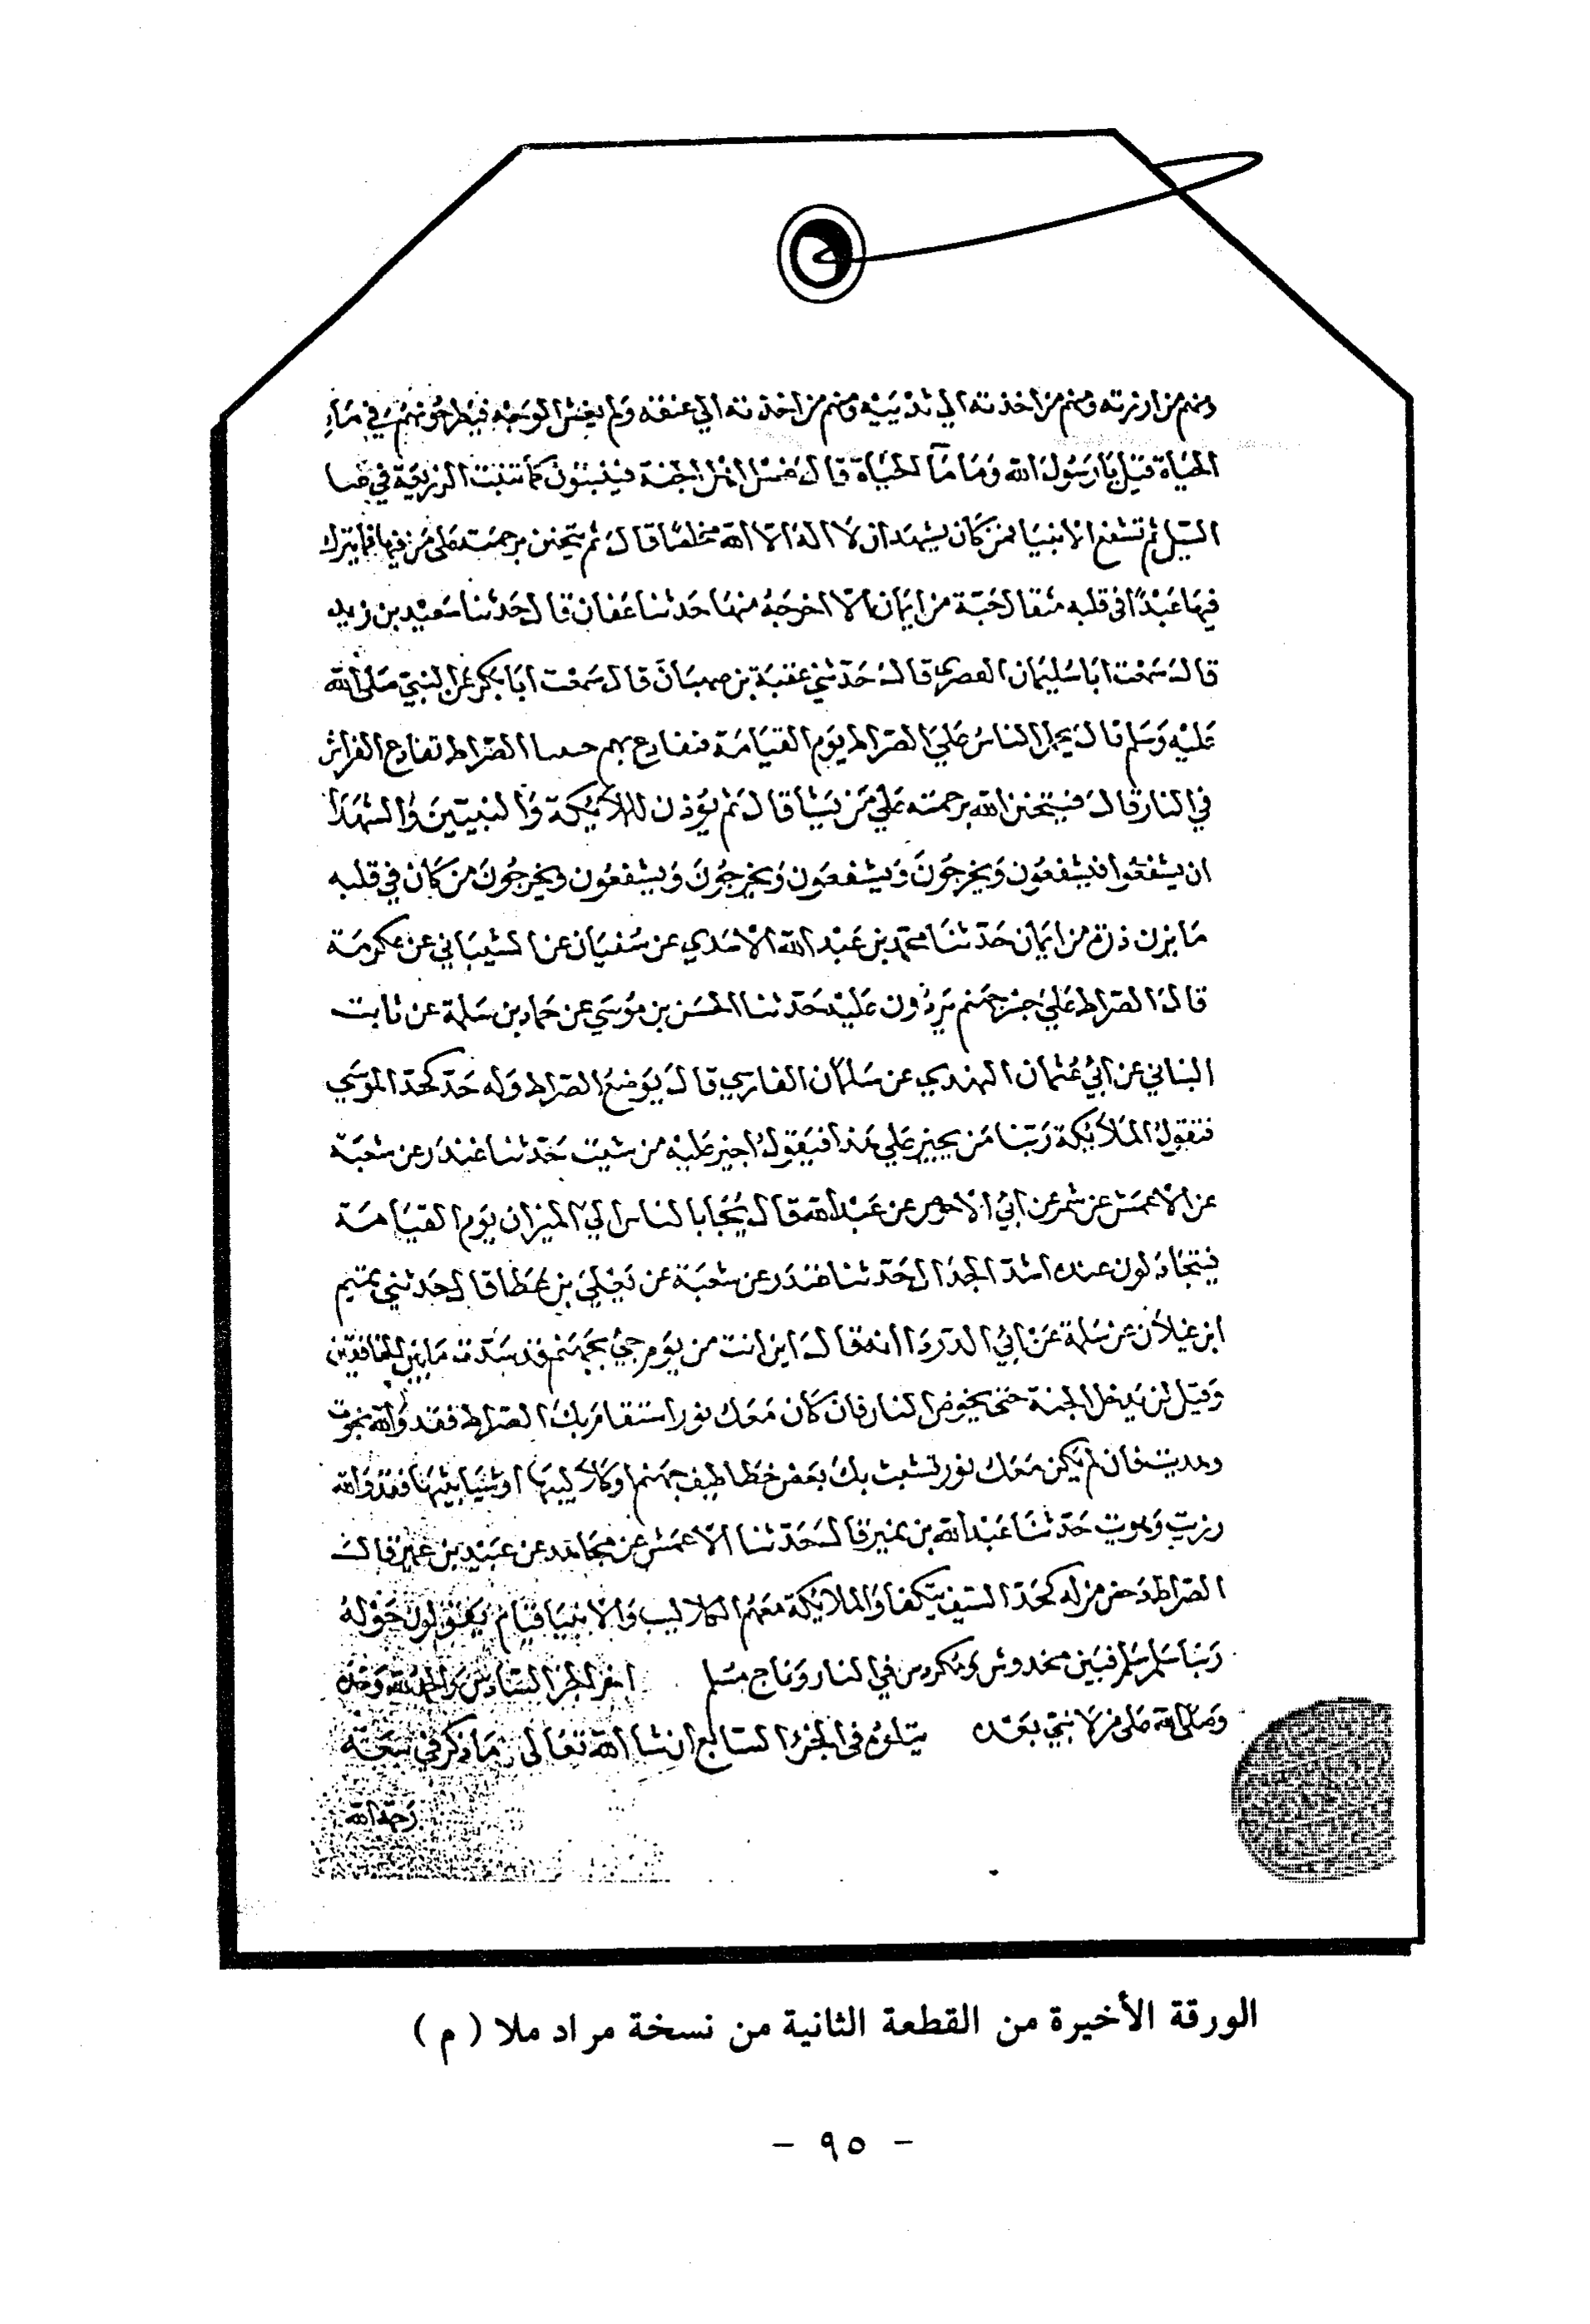 ومنهم من ازرته ومنهم من اخذته الي ثدييه ومنهم من اخذته الي عنقه ولم يغش الوجه فيطرحونهم في ماء
الحياة قيل يا رسول الله وما ماَ الحياة قال غسل اهل الجنة فينبتون كما تنبت الزريعة في غثا
السيل ثم تشفع الانبيا فمن كان يشهد ان لا اله الا الله مخلصًا قال ثم يتحنن برحمته على من فيها فما يترك
فيها عبدًا في قلبه مثقال حبة من ايمان الا اخرجه منها حدثنا عفان قال حدثنا سعيد بن زيد
قال سمعت ابا سليمان العصري قال حدثني عقبة بن صهبان قال سمعت ابا بكر عن النبي صلى الله
عليه وسلم قال يحمل الناس علي الصراط يوم القيامة فتقادع بهم الصراط تقادع الفراش
في النار قال فيتحنن الله برحمته علي من يشا قال ثم يؤذن للملائكة والنبيين والشهدا
ان يشفعوا فيشفعون ويخرجون ويشفعون ويخرجون ويشفعون ويخرجون من كان في قلبه
ما يزن ذرة من ايمان حدثنا محمد بن عبد الله الاسدي عن سفيان عن الشيباني عن عكرمة
قال الصراط علي جسر جهنم يردون عليه حدثنا الحسن بن موسي عن حماد بن سلمة عن ثابت
البناني عن ابي عثمان النهدي عن سلمان الفارسي قال يوضع الصراط وله حد كحد الموسي
فتقول الملائكة ربنا من يجيز علي هذا فيقول اجيز عليه من شيت حدثنا غندر عن شعبة
عن الاعمش عن شمر عن ابي الاحوص عن عبد الله قال يجا بالناس الي الميزان يوم القيامة
فيتجادلون عنده اشد الجدال حدثنا غندر عن شعبة عن يعلي بن عطا قال حدثني تميم
ابن غيلان عن سلمة عن ابي الدردا انه قال اين انت من يوم جي بجهنم قد سدت ما بين الخافقين
وقيل لن يدخل الجنة حتى يخوض النار فان كان معك نور استقام بك الصراط فقد والله نجوت
وهديت فان لم يكن معك نور تشبث بك بعض خطاطيف جهنم او كلاليبها او شبابيثها فقد والله
رديت وهويت حدثنا عبد الله بن نمير قال حدثنا الاعمش عن مجاهد عن عبيد بن عمير قال
الصراط دحض مزلة كحد السيف يتكفا والملائكة معهم الكلاليب والانبيا قيام يقولون حوله
ربنا سلم سلم فبين مخدوش ومكردس في النار وناج مسلم اخر الجز السادس والحمد لله وحده
وصلى الله على من لا نبي بعده يتلوه في الجزء السابع ان شا الله تعالى ما ذكر في سعة
رحمة الله
الورقة الأخيرة من القطعة الثانية من نسخة مراد ملا ( م )
- ٩٥ -